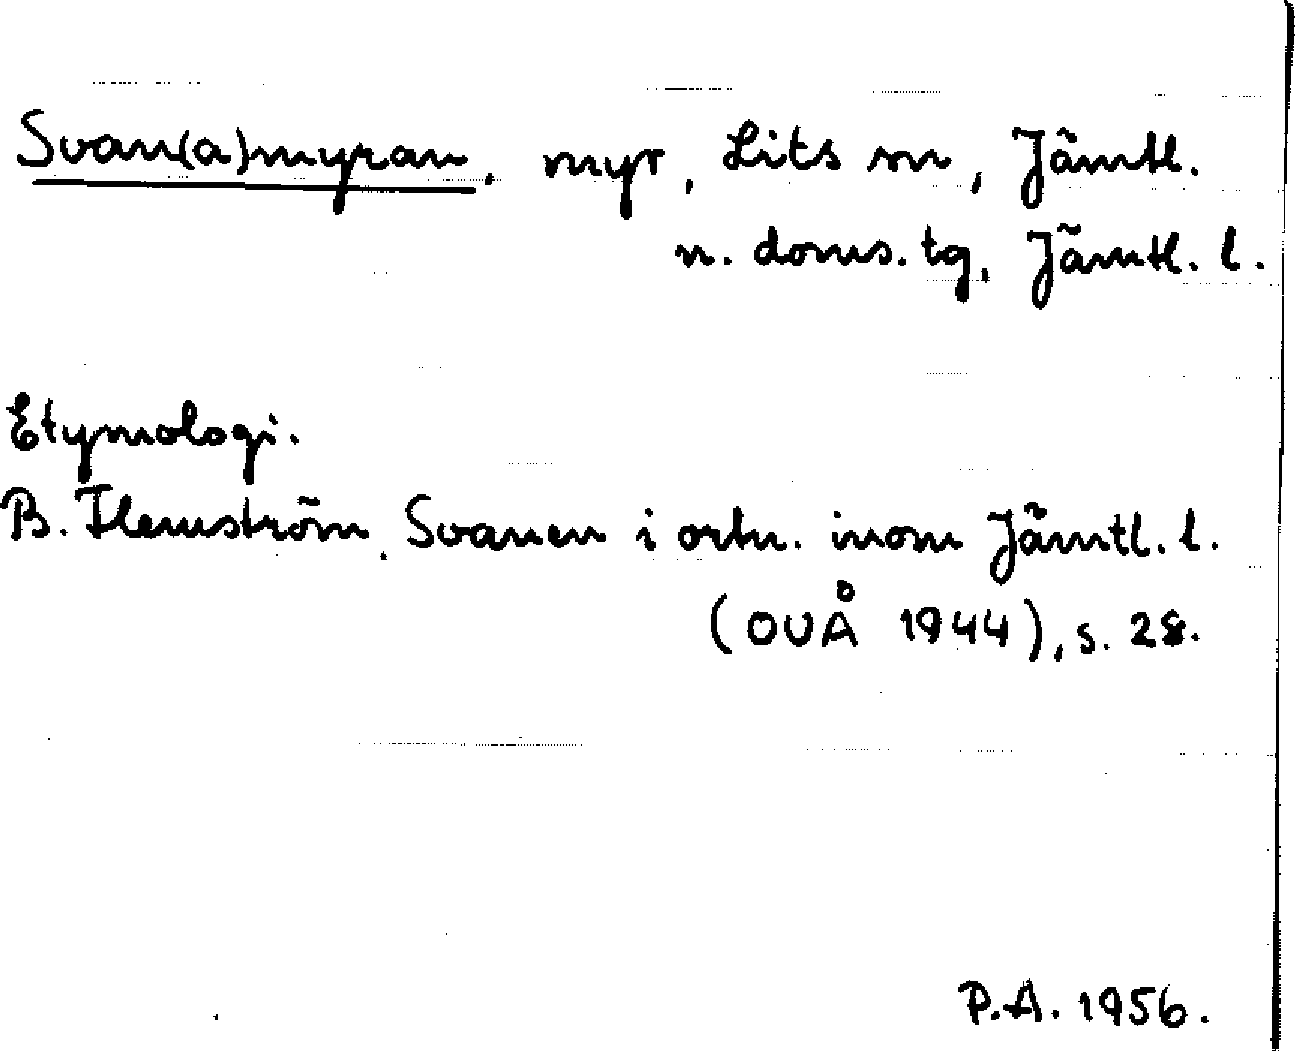 Svan(a)myran, myr, Lits sn, Jämtl.
n. doms. tg, Jämtl. l.
Etymologi.
B. Flemström, Svanen i ortn. inom Jämtl. l.
(OUÅ 1944), s. 28.
P.A. 1956.